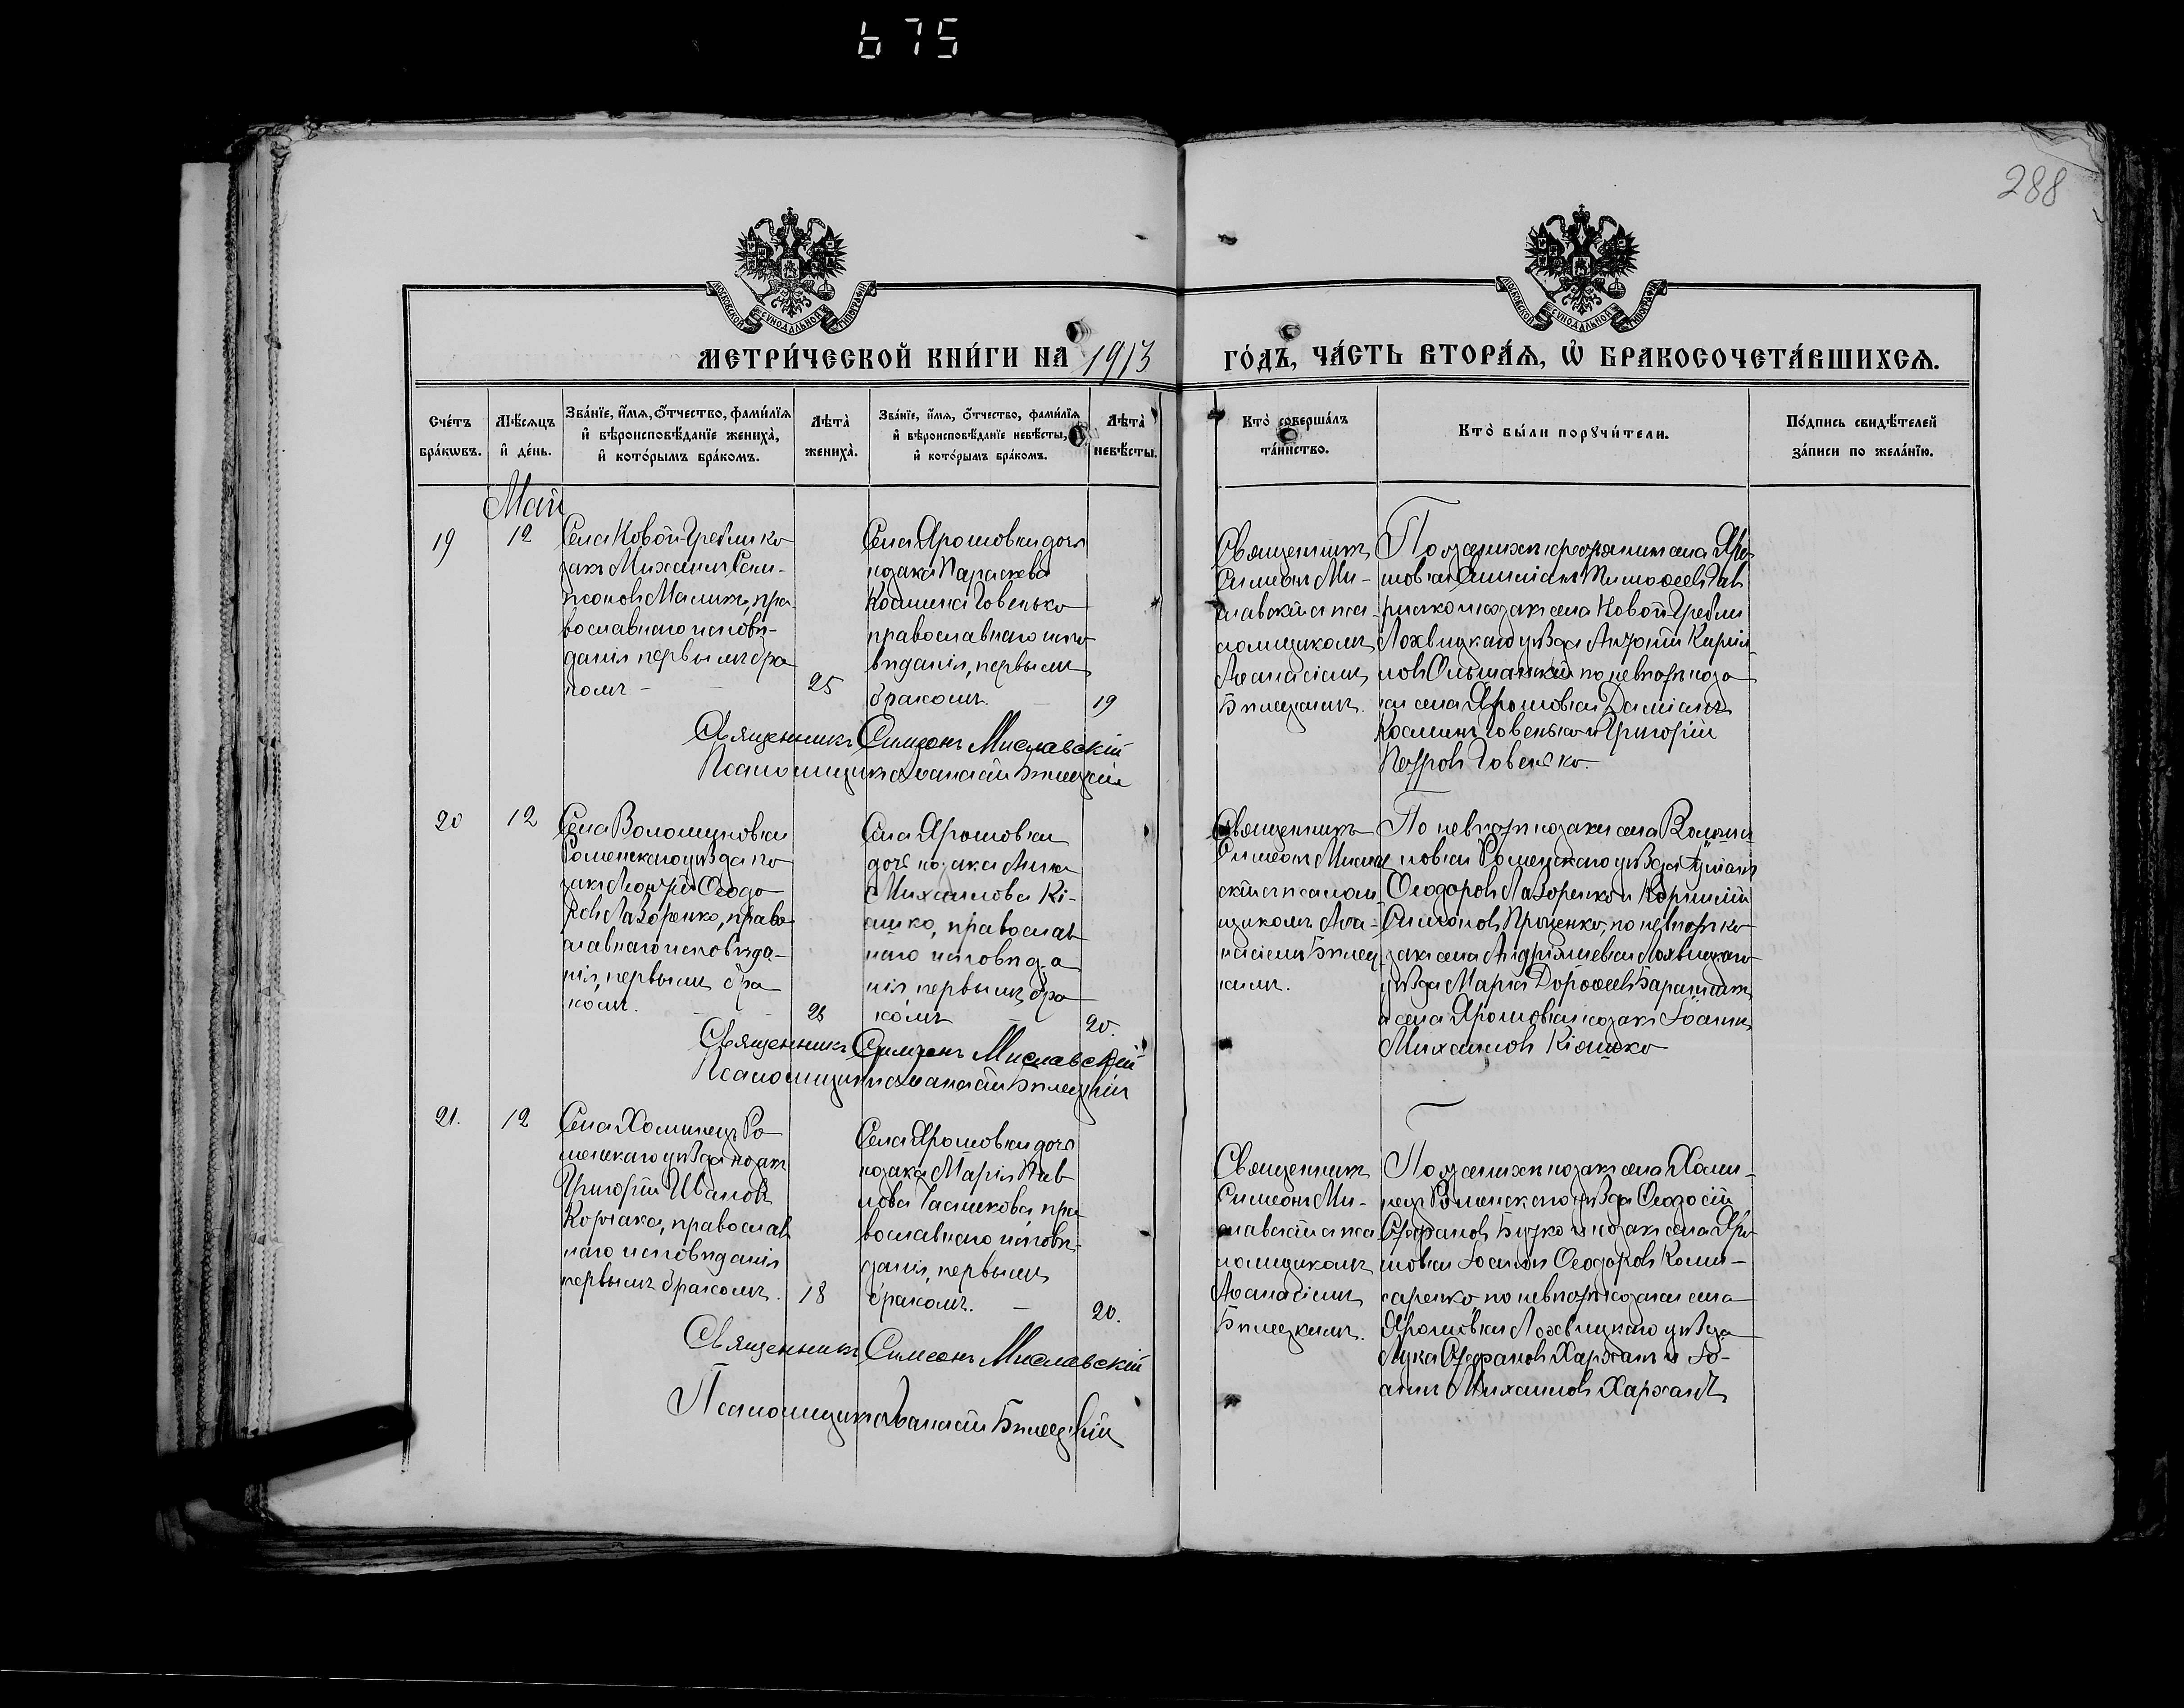 675
288
МЕТРИ́ЧЕСКОЙ КНИ́ГИ НА 1913 ГО́ДЪ, ЧА́СТЬ ВТОРА́Я, Ѡ҆ БРАКОСОЧЕТА́ВШИХСѦ.
МОСКОВСКОЙ СѴНОДАЛЬНОЙ ТИПОГРАФІИ
МОСКОВСКОЙ СѴНОДАЛЬНОЙ ТИПОГРАФІИ
Сче́тъ
бра́кѡвъ.
Мѣ́сѧцъ
и҆ де́нь.
Зва́нїе, и҆́мѧ, ѻ҆́тчество, фами́лїѧ
и҆ вѣроисповѣ́данїе жениха̀,
и҆ кото́рымъ бра́комъ.
Лѣта̀
жениха̀.
Зва́нїе, и҆́мѧ, ѻ҆́тчество, фами́лїѧ
и҆ вѣроисповѣ́данїе невѣ́сты,
и҆ кото́рымъ бра́комъ.
Лѣта̀
невѣ́сты.
Кто̀ соверша́лъ
та́инство.
Кто̀ бы́ли порꙋчи́тели.
По́дпись свидѣ́телей
за́писи по жела́нїю.
Май
19
12
Села Новой-Гребли ко
закъ Михаилъ Сам-
псоновъ Маликъ, пра-
вославнаго исповѣ-
данія первымъ бра
комъ -
25
Села Ярошовки дочь
козака Параскева
Космина Говенько
православнаго испо
вѣданія, первымъ
бракомъ.
19
Священникъ
Симеонъ Ми-
славскій с пса-
ломщикомъ
Аѳанасіемъ
Бѣлецкимъ.
По женихѣ крестьянинъ села Яро
шовки Тимоѳеевъ Гав
рилко и козакъ села Новой-Гребли
Лохвицкаго уѣзда Антоній Кирил
ловъ Ольшанскій по невѣстѣ коза
ки села Ярошовки Даміанъ
Косминъ Говенько и Григорій
Петровъ Говенько.
Священникъ Симеонъ Миславскій
Псаломщикъ Аѳанасій Бѣлецкій
20
12
Села Волошиновки
Роменскаго уѣзда ко
закъ Леонтій Ѳеодо
ровъ Лазоренко, право
славнаго исповѣда-
нія, первымъ бра
комъ.
Села Ярошовки
дочь козака
Михаилова Кі-
яшко, православ
наго исповѣда
нія первымъ бра
комъ
20.
Священникъ
Симеонъ Мислав
скій с псалом
щикомъ Аѳа-
насіемъ Бѣлец
кимъ.
По невѣстѣ козаки села Волоши
новки Роменскаго уѣзда
Ѳеодоровъ Лазоренко и Корнилій
Симоновъ Проценко, по невѣстѣ ко
закъ села Андріяшевки Лохвицкаго
уѣзда Марко Дороѳеевъ Баранникъ
и села Ярошовки козакъ Іоаннъ
Михаиловъ Кіяшко
Священникъ Симеонъ Миславскій
Псаломщикъ Аѳанасій Бѣлецкій
21.
12
Села Хоминецъ Ро
менскаго уѣзда козакъ
Григорій Ивановъ
Корчака, православ
наго исповѣданія
первымъ бракомъ.
18
Села Ярошовки дочь
козака Марія Пав
лова пра
вославнаго исповѣ-
данія, первымъ
бракомъ.
20.
Священникъ
Симеонъ Ми-
славскій с пса
ломщикомъ
Аѳанасіемъ
Бѣлецкимъ.
По женихѣ козакъ села Хоми-
нецъ Роменскаго уѣзда Ѳеодосій
Стефановъ Бутко и козакъ села Яро
шовки Іоаннъ Ѳеодоровъ Коми-
саренко по невѣстѣ козаки села
Ярошовки Лохвицкаго уѣзда
Лука Стефановъ Харханъ и Іо-
аннъ Михаиловъ Харханъ
Священникъ Симеонъ Миславскій
Псаломщикъ Аѳанасій Бѣлецкій